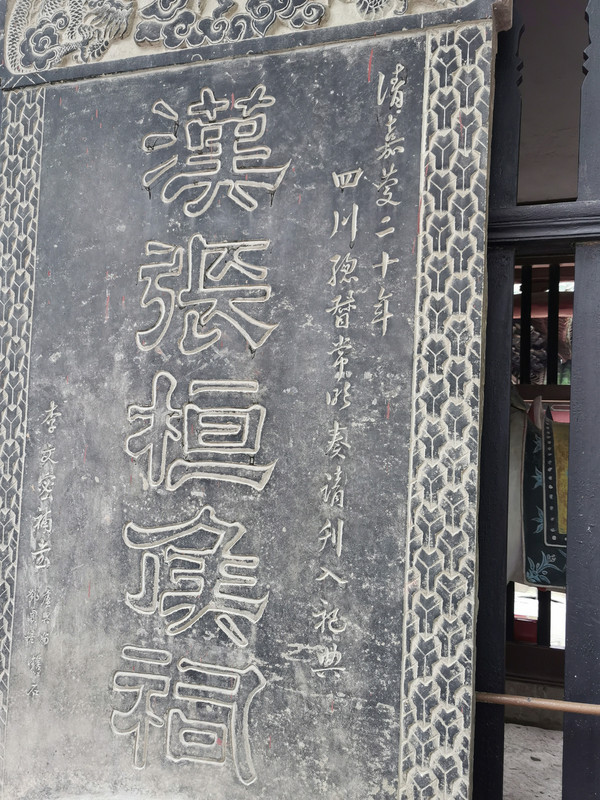 清嘉慶二十年
四川總督常明奏請列入祀典
漢張桓侯祠
李文密補書